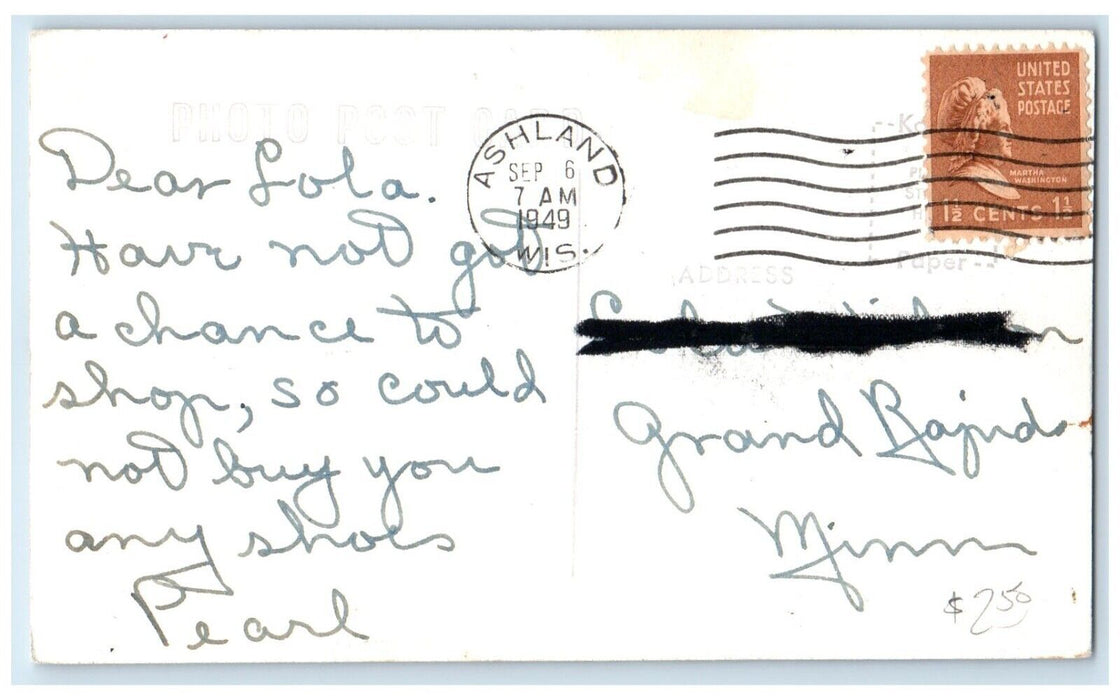 PHOTO POST CARD
Dear Lola.
Have not got
a chance to
shop, so could
not buy you
any shoes
Pearl
ASHLAND
SEP 6
7 AM
1949
WIS.
UNITED
STATES
POSTAGE
MARTHA
WASHINGTON
1½ CENTS 1½
Paper
ADDRESS
Grand Rapids
Minn
$2.50